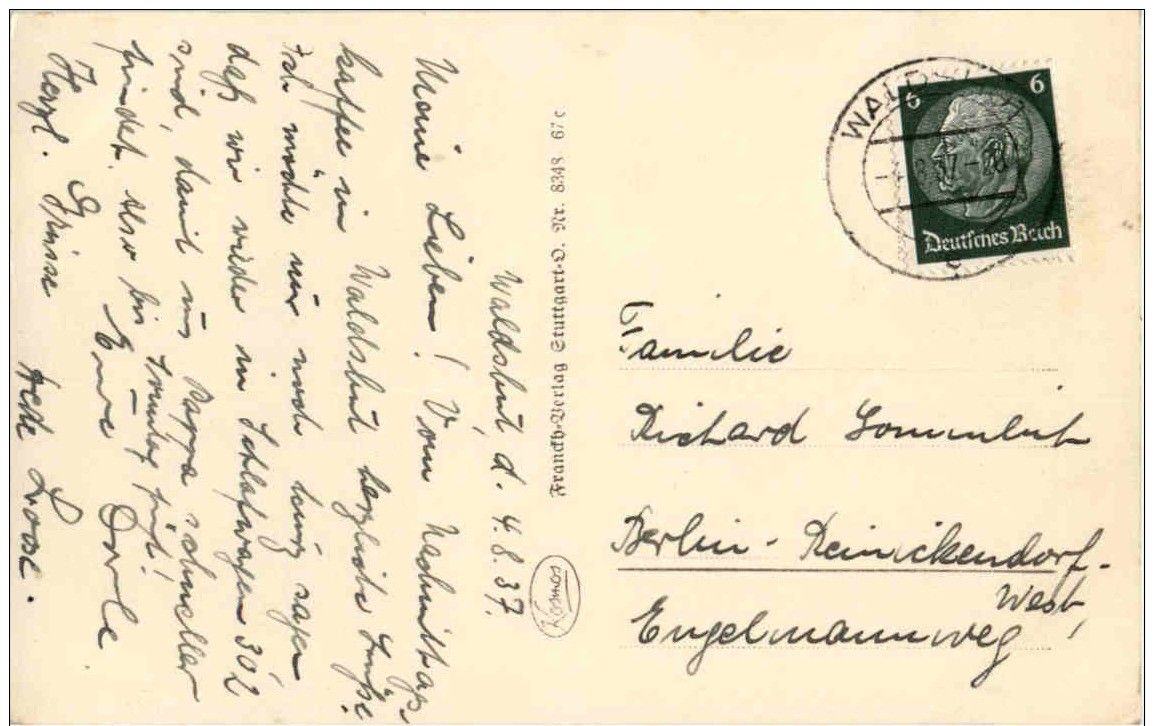 Waldshut, d. 4.8.37.
Meine Lieben! Vom Nachmittags-
kaffee in Waldshut herzliche Grüße.
Ich möchte nur noch sagen
daß wir wieder im Schlafwagen 302
sind, damit uns Pappa schneller
findet. Also bis Sonntag früh!
Eure Dorle.
Herzl. Grüsse
Loose.
Franckh-Verlag Stuttgart-O. Nr. 8348 67c
Kosmos
WALDSHUT
6 6
Deutsches Reich
Familie
Richard
Berlin-Reinickendorf-
West,
Engelmannweg